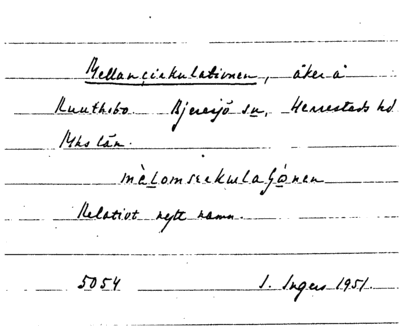 Mellancirkulationen, åker å
Ruuthsbo. Bjeresjö sn, Herrestads hd
Mhs län.
Relativt nytt namn.
5054 I. Ingers 1951.